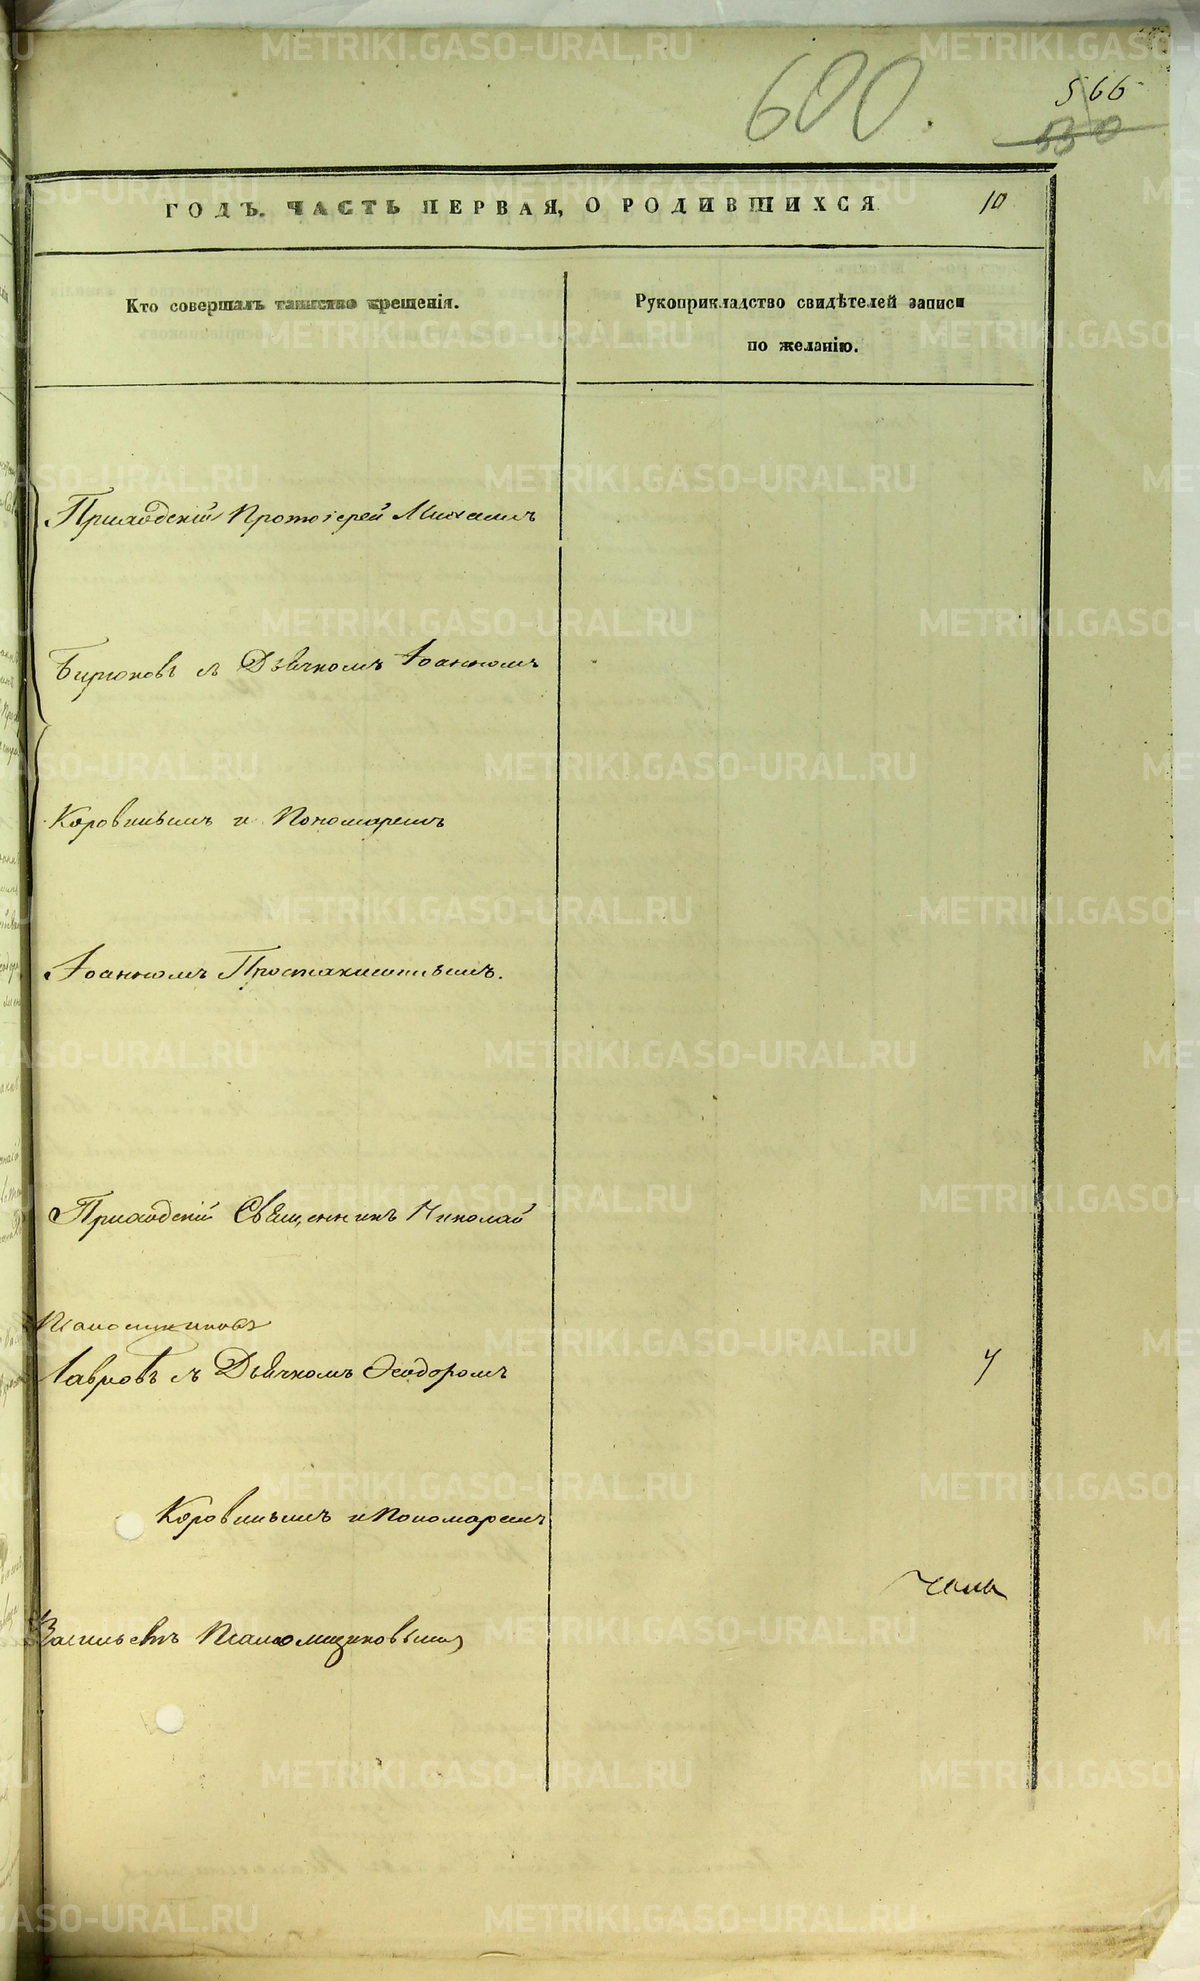 600.
566
530
ГОДЪ. ЧАСТЬ ПЕРВАЯ, О РОДИВШИХСЯ 10
Кто совершалъ таинство крещенія.
Рукоприкладство свидѣтелей записи
по желанію.
Приходскій Протоіерей Михаилъ
Бирюковъ съ Дьячкомъ Іоанномъ
Коровинымъ и Пономаремъ
Іоанномъ
Приходскій Священникъ Николай
Лавровъ съ Дьячкомъ Ѳеодоромъ
Коровинымъ и Пономаремъ
METRIKI.GASO-URAL.RU